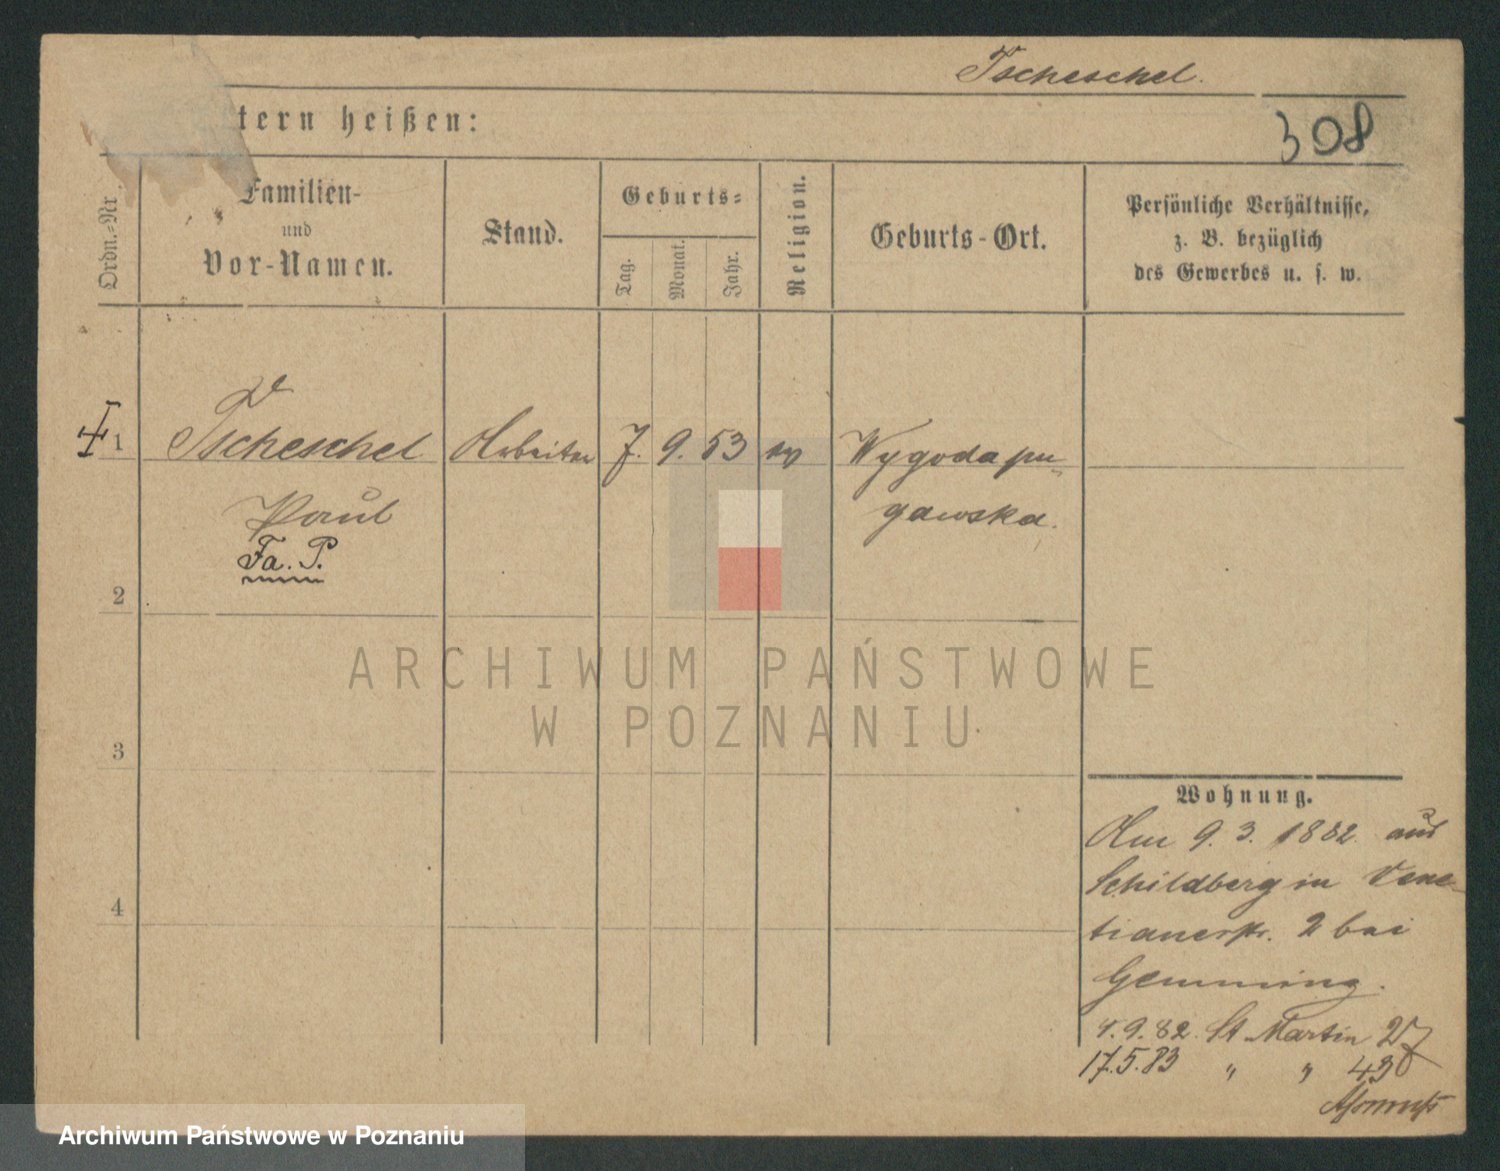 Tscheschel.
tern heißen:
308
Ordn.-Nr.
Familien-
und
Vor-Namen.
Stand.
Geburts-
Tag.
Monat.
Jahr.
Religion.
Geburts-Ort.
Persönliche Verhältnisse,
z. B. bezüglich
des Gewerbes u. s. w.
1
Tscheschel
Arbeiter
7.
9.
53
ev
Wygoda pu-
gawska.
Paul
Fa. P.
2
3
4
Wohnung.
Am 9. 3. 1882. aus
Schildberg in Vene-
tianerstr. 2 bei
Gemming.
4.9.82. St Martin 27
17.5.83 " " 43
ARCHIWUM PAŃSTWOWE
W POZNANIU
Archiwum Państwowe w Poznaniu